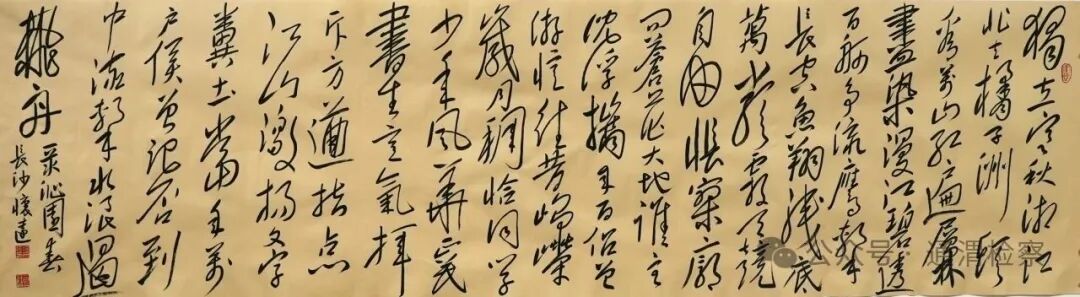 獨立寒秋湘江
北去橘子洲頭
看萬山紅遍層林
盡染漫江碧透
百舸争流鷹擊
長空魚翔淺底
萬類霜天競
自由悵寥廓
問蒼茫大地誰主
沉浮攜來百侣曾
遊憶往昔崢嶸
歲月稠恰同學
少年風華正茂
書生意氣揮
斥方遒指點
江山激揚文字
糞土當年萬
户侯曾記否到
中流擊水浪遏
飛舟
录沁園春
長沙懷
公众号·通渭检察